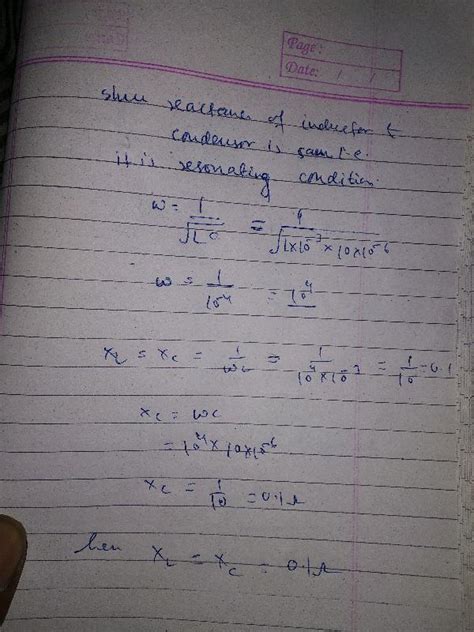 Page:
Date: / /
since reactance of inductor &
condensor is same i.e.
it is resonating condition.
ω = 1/√LC = 1/√1×10⁻³×10×10⁻⁶
ω = 1/10⁻⁴ = 10⁴
X_L = X_C = 1/ωL = 1/10⁴×10⁻³ = 1/10 = 0.1
X_C = ωC
= 10⁴×10×10⁻⁶
X_C = 1/10 = 0.1Ω
hen X_L = X_C = 0.1Ω